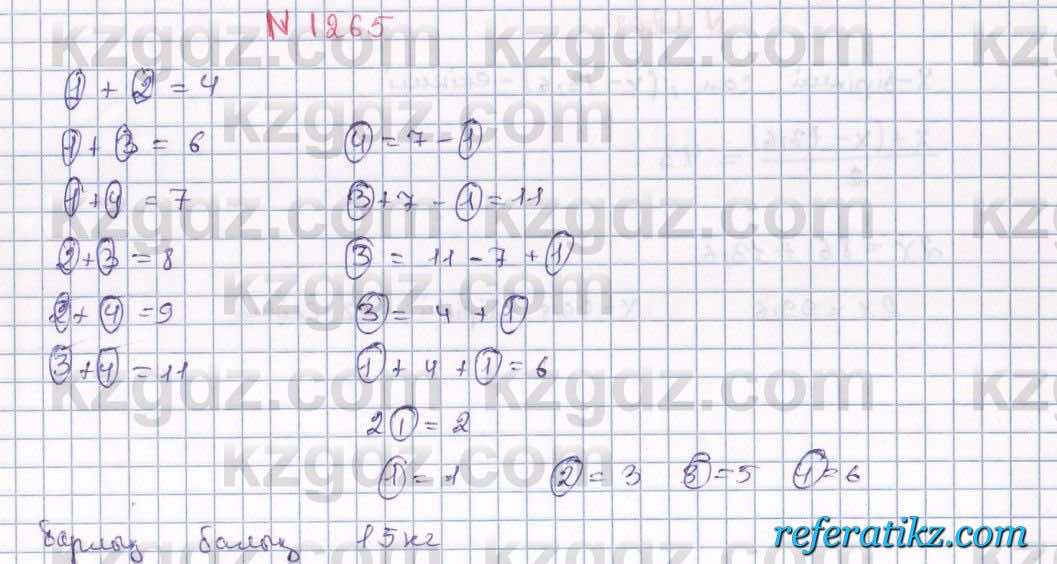 N 1265
① + ② = 4
① + ③ = 6
① + ④ = 7
② + ③ = 8
② + ④ = 9
③ + ④ = 11
④ = 7 - ①
③ + 7 - ① = 11
③ = 11 - 7 + ①
③ = 4 + ①
① + 4 + ① = 6
2① = 2
① = 1 ② = 3 ③ = 5 ④ = 6
барлық балық 15 кг
kzgdz.com
referatikz.com